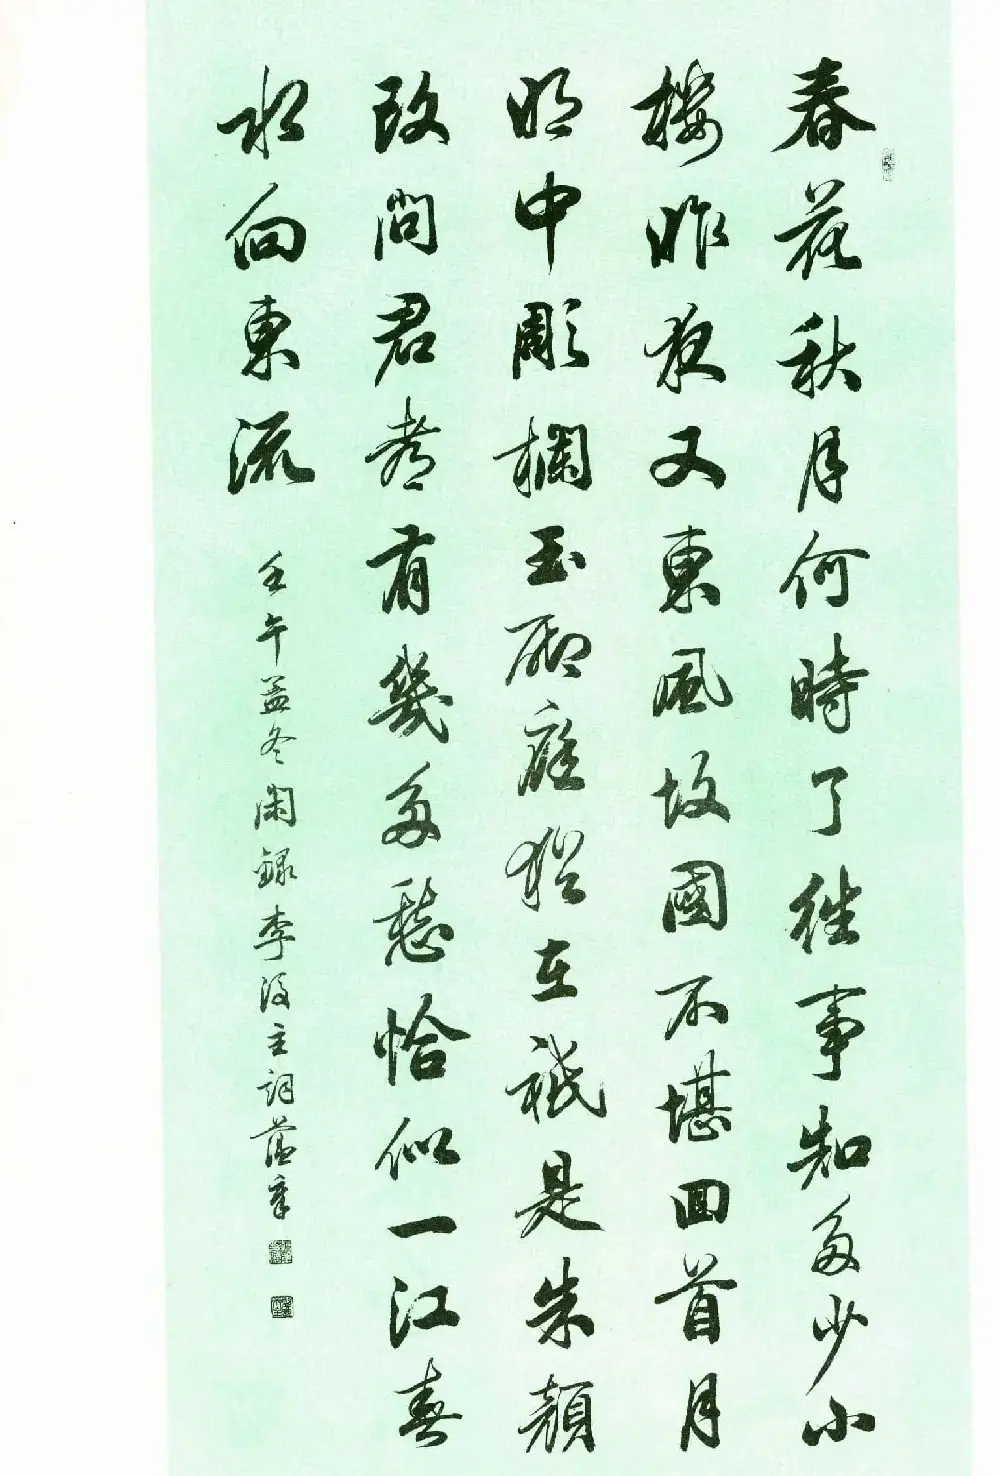 春花秋月何時了往事知多少小
樓昨夜又東風故國不堪回首月
明中彫欄玉砌應猶在祗是朱顏
改問君都有幾多愁恰似一江春
水向東流
壬午孟冬閑錄李後主詞